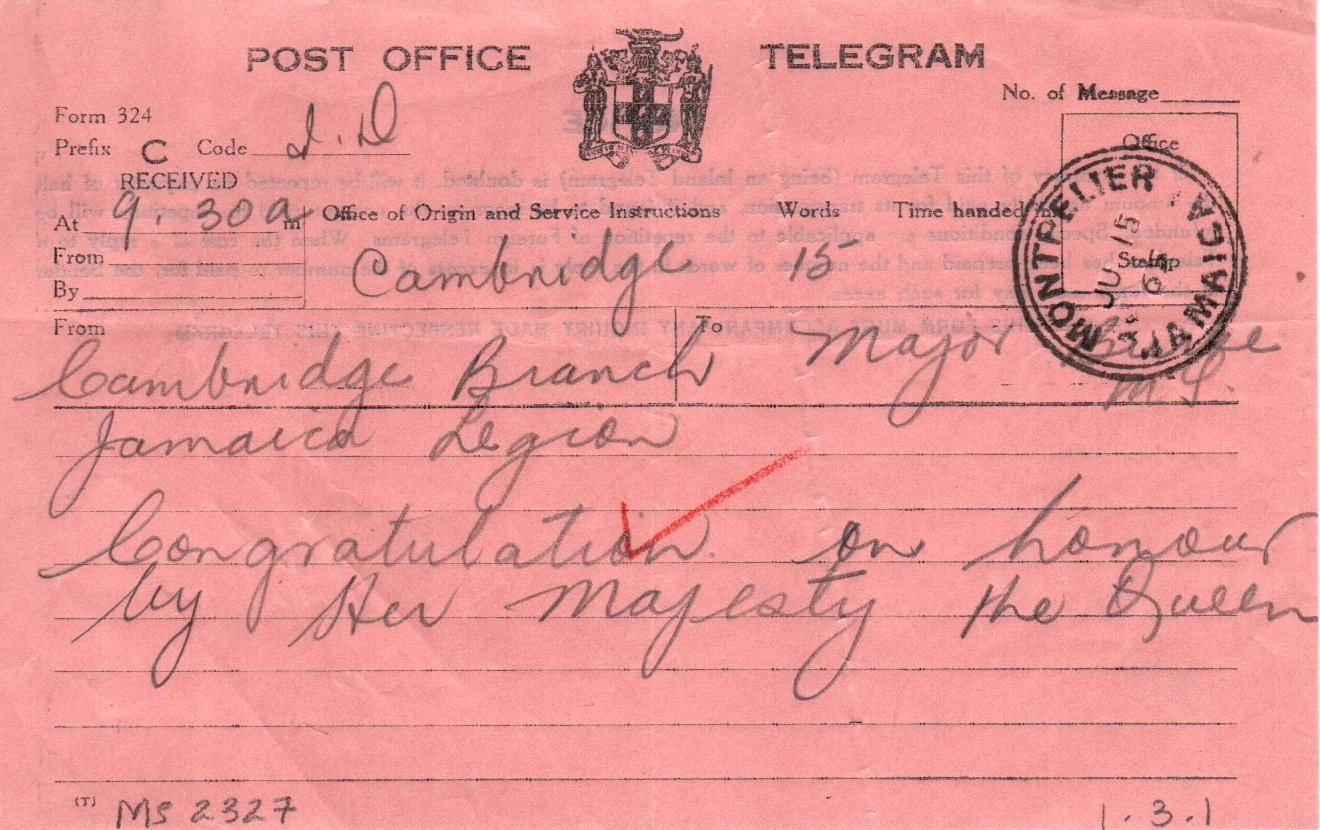 POST OFFICE TELEGRAM
No. of Message
Form 324
Prefix C Code I.D
Office
RECEIVED
At 9.30 a m
Office of Origin and Service Instructions Words Time handed in
From
Cambridge 15
Stamp
By
MONTPELIER JAMAICA
JU 15
From To
Cambridge Branch Major
Jamaica Legion
Congratulation on honour
by Her Majesty the Queen
(T) MS 2327 1.3.1